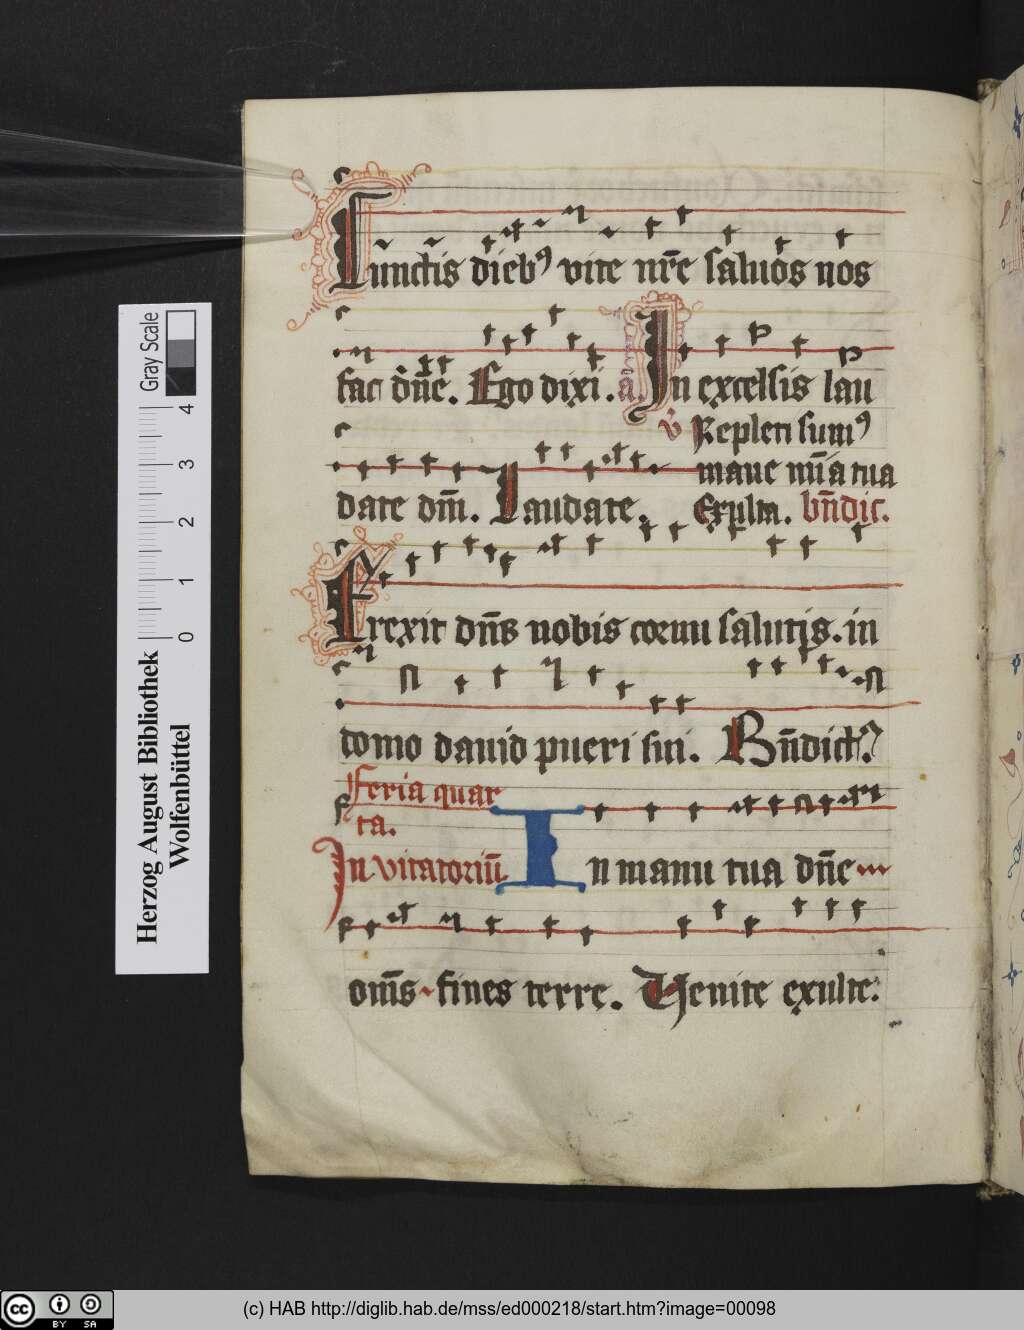 Cunctis diebꝰ vite nr̄e saluos nos
fac dn̄e. Ego dixi. a. In excelsis lau
v̄ Repleti sumꝰ
maue mīa tua
dare dm̄. Laudate. Exulta. bn̄dic.
Erexit dn̄s nobis cornu salutis. in
domo dauid pueri sui. Bn̄dictꝰ
Feria quar
ta.
Inuitatoriū In manu tua dn̄e
om̄s fines terre. Venite exulte.
Gray Scale
4 3 2 1 0
Herzog August Bibliothek
Wolfenbüttel
(c) HAB http://diglib.hab.de/mss/ed000218/start.htm?image=00098
cc BY SA